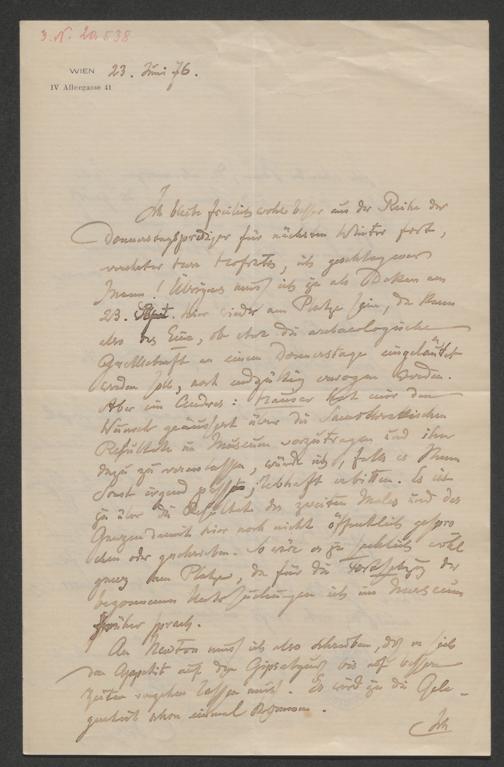 3. N. 20538
WIEN 23. Juni 76.
IV Alleegasse 41
Ich bleibe freilich wohl besser aus der Reihe der
Donnerstagsprediger für nächsten Winter fort,
verehrter Herr Hofrath, als
Mann! Übrigens muß ich ja als Dekan am
23. Sept. hier wieder am Platze sein, da kann
also das Eine, ob etwa die archaeologische
Gesellschaft an einem Donnerstage eingeläutet
werden soll, noch endgültig erwogen werden.
Aber ein Anderes: Hauser hat mir den
Wunsch geäussert über die Samothrakischen
Resultate im Museum vorzutragen und ihn
dazu zu veranlassen, würde ich, falls es Ihnen
sonst irgend passte, lebhaft erbitten. Es ist
ja über die Resultate des zweiten Males und das
Ganze damit hier noch nicht öffentlich gespro
chen oder geschrieben. So wäre es ja sachlich wohl
ganz am Platze, da für die Fortsetzung der
begonnenen Untersuchungen ich im Museum
früher sprach.
An Newton muß ich also schreiben, daß er sich
den Appetit auf den Gipsabguß bis auf bessere
Zeiten vergehen lassen muß. Es wird ja die Gele-
genheit schon einmal kommen.
Ich